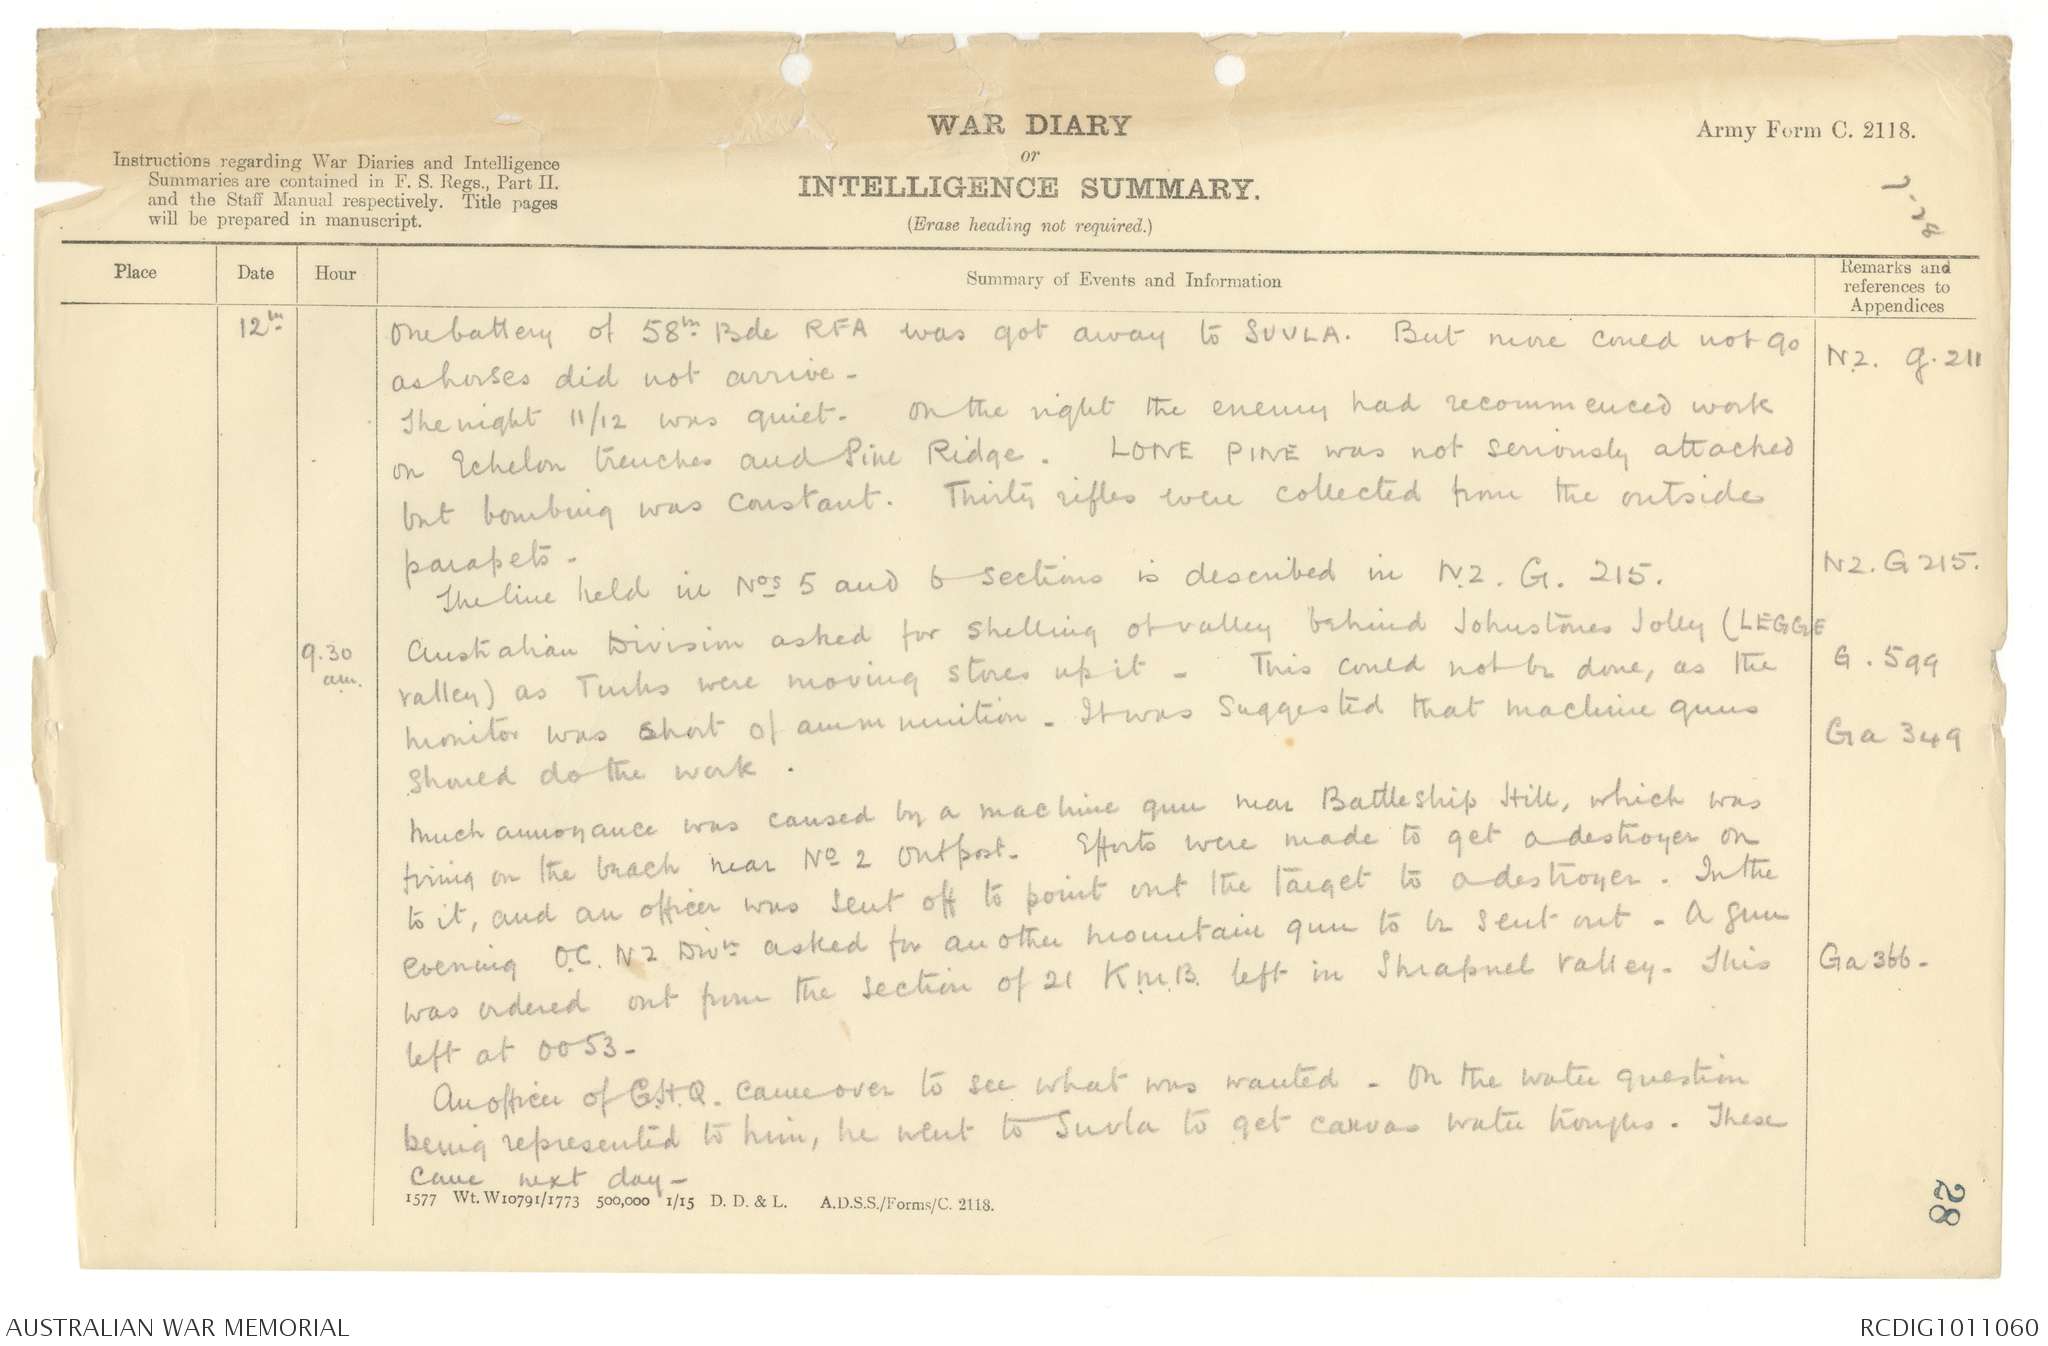 WAR DIARY
or
INTELLIGENCE SUMMARY.
(Erase heading not required.)
Army Form C. 2118.
Instructions regarding War Diaries and Intelligence
Summaries are contained in F. S. Regs., Part II.
and the Staff Manual respectively. Title pages
will be prepared in manuscript.
Place
Date
Hour
Summary of Events and Information
Remarks and
references to
Appendices
12th
One battery of 58th Bde RFA was got away to SUVLA. But more could not go
N.Z. G. 211
as horses did not arrive -
The night 11/12 was quiet. On the right the enemy had recommenced work
on Echelon trenches and Pine Ridge. LONE PINE was not seriously attacked
but bombing was constant. Thirty rifles were collected from the outside
parapets -
The line held in Nos 5 and 6 sections is described in N.Z. G. 215.
NZ. G 215.
9.30
am.
Australian Division asked for shelling of valley behind Johnstones Jolly (LEGGE
valley) as Turks were moving stores up it - This could not be done, as the
G. 599
monitor was short of ammunition - It was suggested that machine guns
Ga 349
should do the work.
Much annoyance was caused by a machine gun near Battleship Hill, which was
firing on the beach near No 2 Outpost. Efforts were made to get a destroyer on
to it, and an officer was sent off to point out the target to a destroyer. In the
evening O.C. NZ Divn asked for another mountain gun to be sent out - A gun
Ga 366-
was ordered out from the section of 21 K.M.B. left in Shrapnel Valley. This
left at 0053-
An officer of G.H.Q. came over to see what was wanted - On the water question
being represented to him, he went to Suvla to get canvas water troughs. These
came next day -
1577 Wt. W10791/1773 500,000 1/15 D. D. & L. A.D.S.S./Forms/C. 2118.
28
AUSTRALIAN WAR MEMORIAL
RCDIG1011060